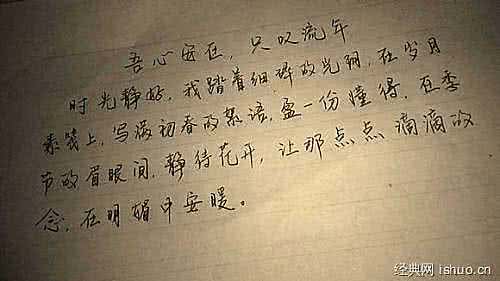 吾心安在，只叹流年
时光静好，我踏着细碎的光阴，在岁月
素笺上，写满初春的絮语，盈一份懂得，在季
节的眉眼间，静待花开，让那点点滴滴的
念，在明媚中安暖。
经典网 ishuo.cn